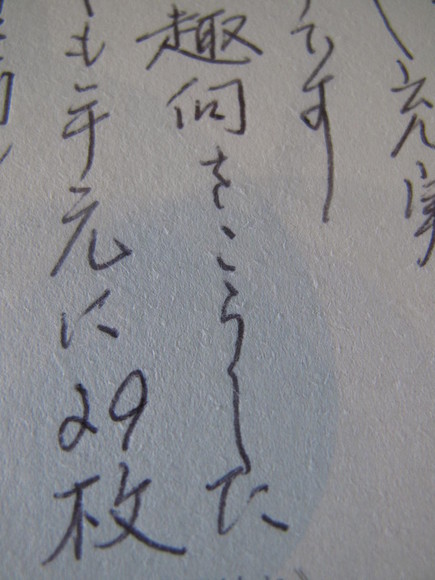 充実
です
趣向をこらした
も手元に29枚